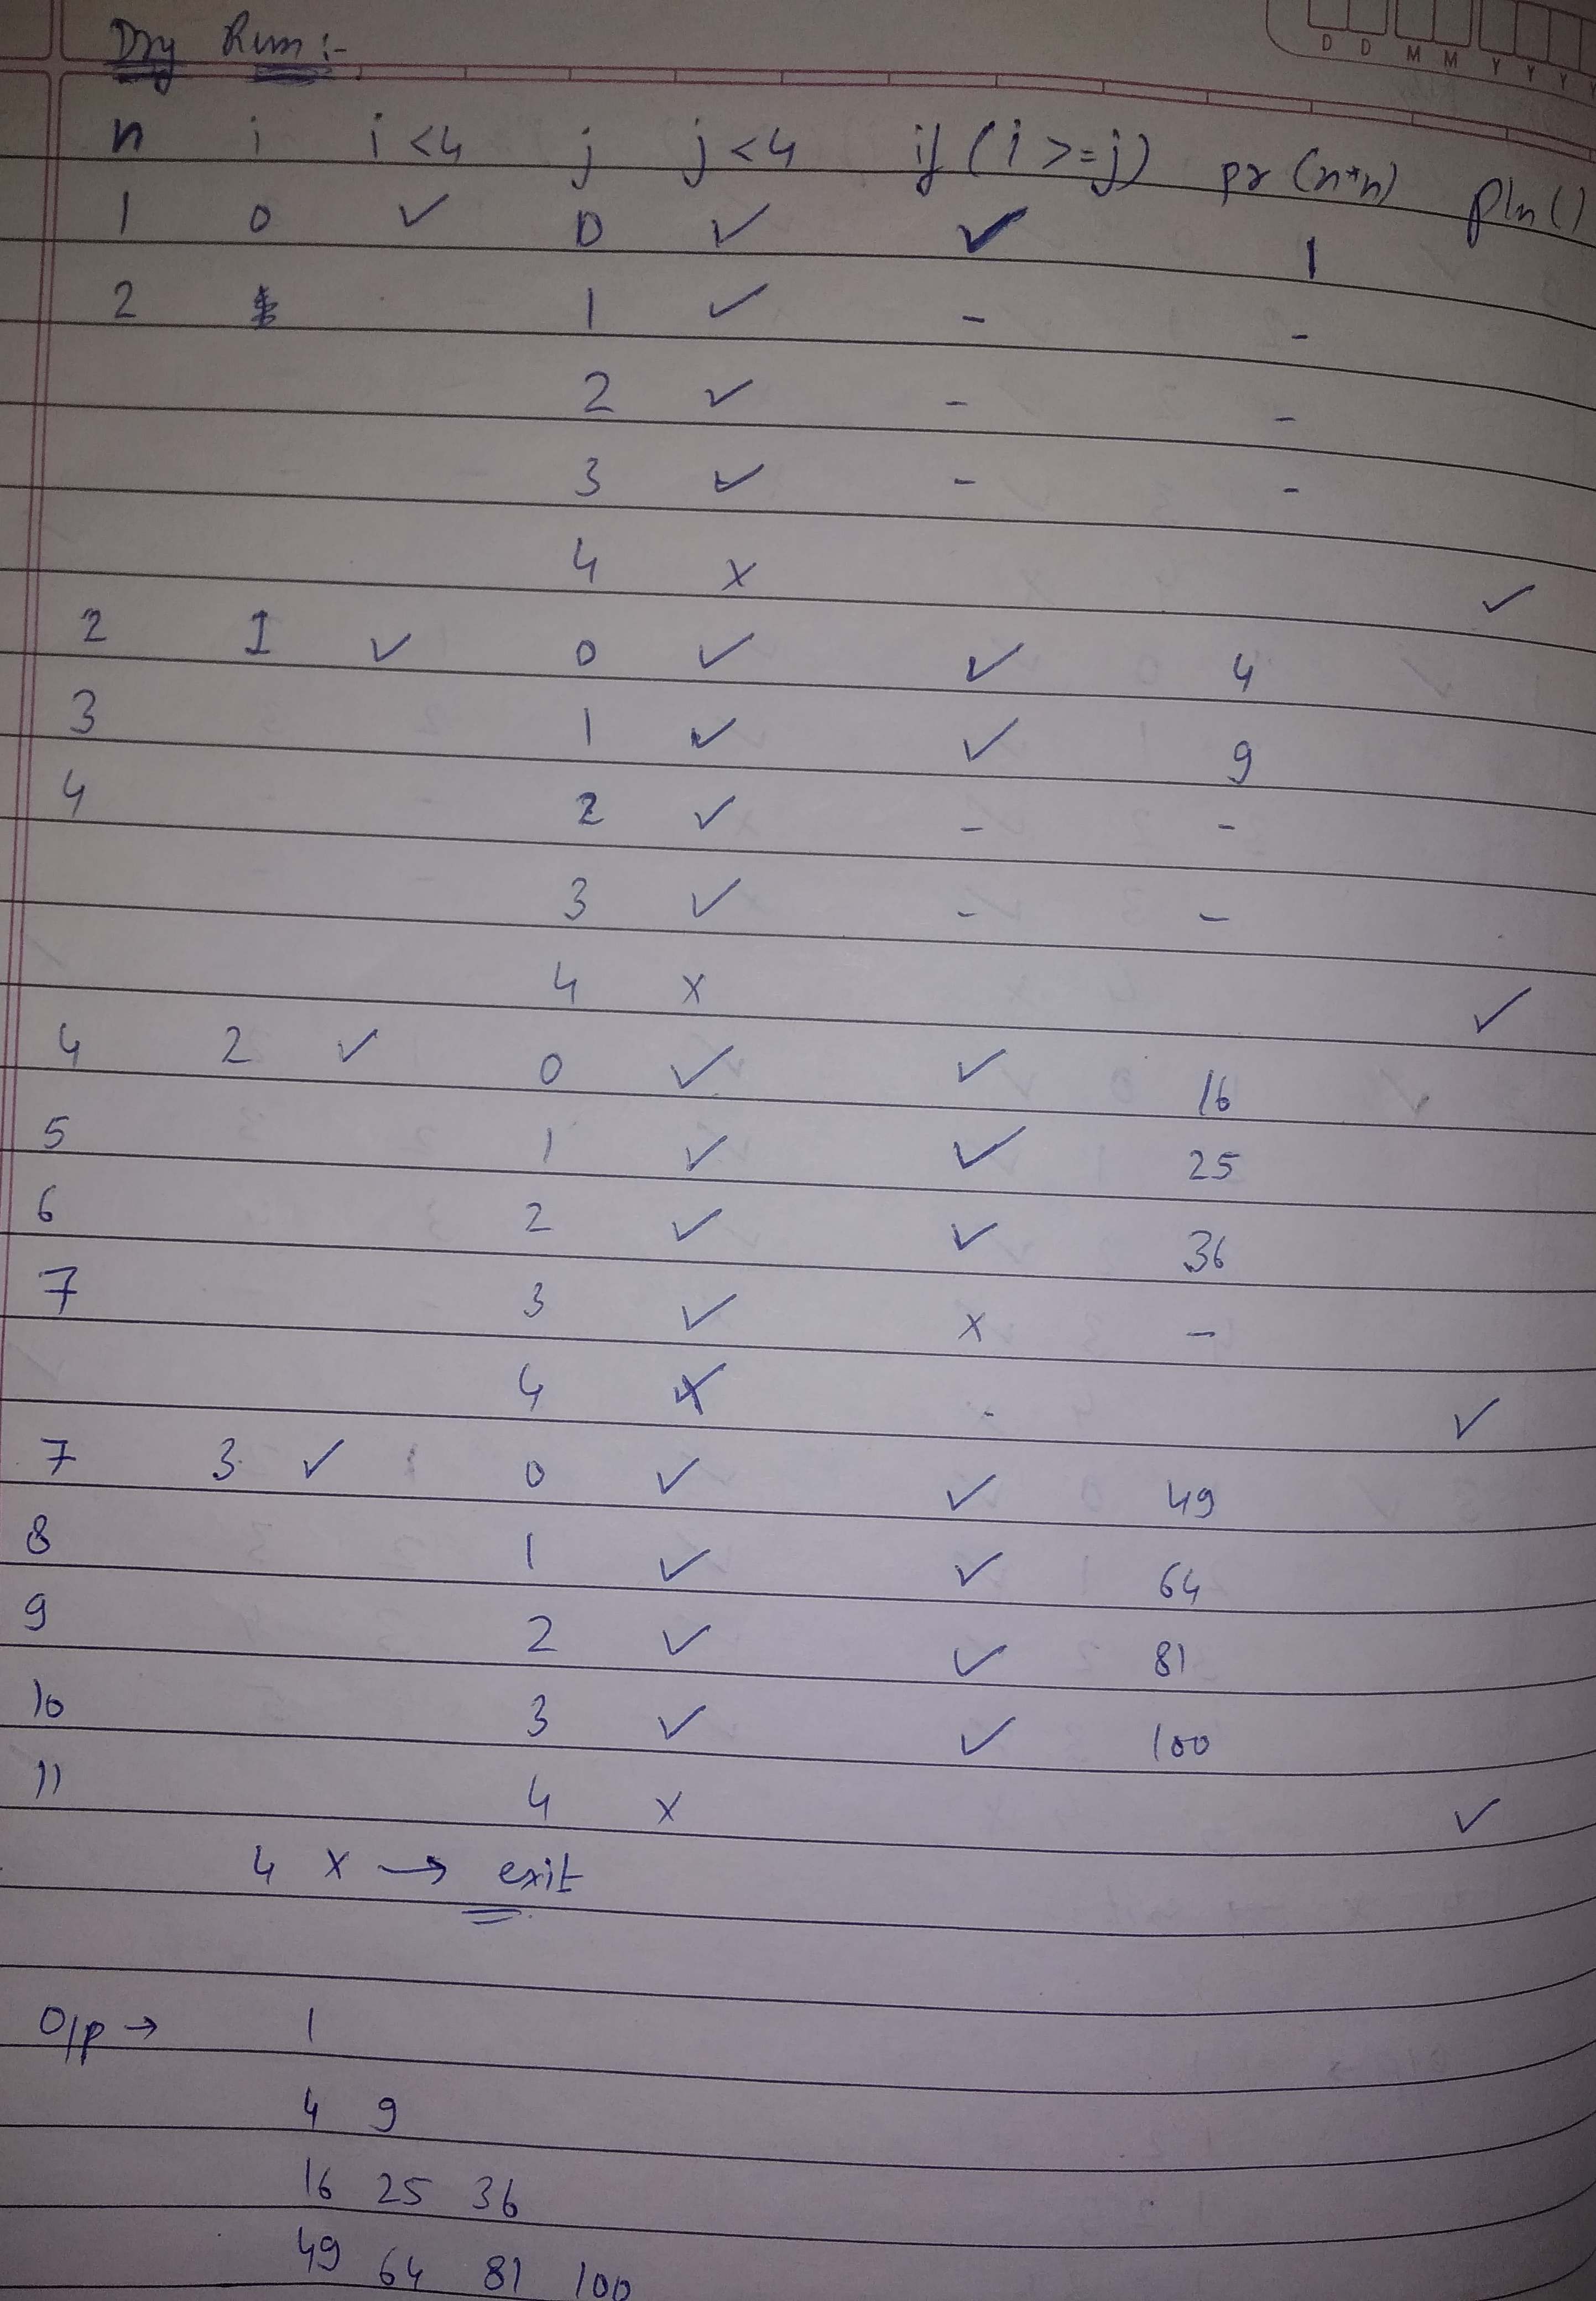 D D M M Y Y Y Y
Dry Run :-
n i i<4 j j<4 if (i>=j) pr (n*n) pln()
1 0 ✓ 0 ✓ ✓ 1
2 1 ✓ - -
2 ✓ - -
3 ✓ - -
4 x ✓
2 1 ✓ 0 ✓ ✓ 4
3 1 ✓ ✓ 9
4 2 ✓ - -
3 ✓ - -
4 x ✓
4 2 ✓ 0 ✓ ✓ 16
5 1 ✓ ✓ 25
6 2 ✓ ✓ 36
7 3 ✓ x -
4 x - ✓
7 3 ✓ 0 ✓ ✓ 49
8 1 ✓ ✓ 64
9 2 ✓ ✓ 81
10 3 ✓ ✓ 100
11 4 x ✓
4 x → exit
O/p → 1
4 9
16 25 36
49 64 81 100